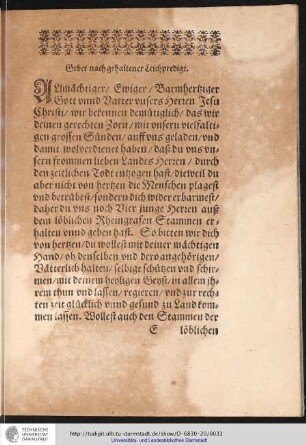 Gebet nach gehaltener Leichpredigt.
ALmächtiger / Ewiger / Barmhertziger
Gott vnnd Vatter vnsers Herren Jesu
Christi / wir bekennen demütiglich / das wir
deinen gerechten Zorn / mit vnsern vielfalti-
gen grossen Sünden / auff vns geladen / vnd
damit wolverdienet haben / daß du vns vn-
sern frommen lieben Landes Herren / durch
den zeitlichen Todt entzogen hast / dieweil du
aber nicht von hertzen die Menschen plagest
vnd betrübest / sondern dich wider erbarmest /
daher du vns noch Vier junge Herren auß
dem löblichen Rheingrafen Stammen er-
halten vnnd geben hast. So bitten wir dich
von hertzen / du wollest mit deiner mächtigen
Hand / ob denselben vnd dero angehörigen /
Vätterlich halten / selbige schützen vnd schir-
men / mit deinem heyligen Geyst / in allem ih-
rem thun vnd lassen / regieren / vnd zur rech-
ten zeit glücklich vnnd gesund zu Land kom-
men lassen. Wollest auch den Stammen der
E löblichen
TECHNISCHE
UNIVERSITÄT
DARMSTADT
http://tudigit.ulb.tu-darmstadt.de/show/O-6830-20/0033
Universitäts- und Landesbibliothek Darmstadt